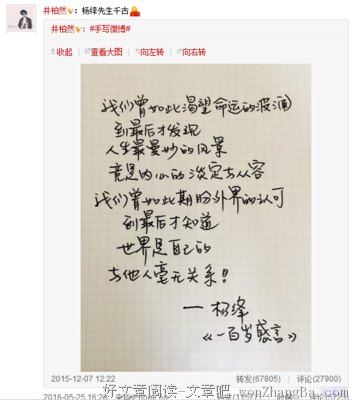 井柏然：杨绛先生千古
井柏然：#手写微博#
收起 | 查看大图 | 向左转 | 向右转
我们曾如此渴望命运的波澜
到最后才发现
人生最曼妙的风景
竟是内心的淡定与从容
我们曾如此期盼外界的认可
到最后才知道
世界是自己的
与他人毫无关系！
— 杨绛
《一百岁感言》
2015-12-07 12:22 转发(67805) | 评论(27900)
好文章阅读-文章吧 wenZhangBa.com
2016-05-25 16:26